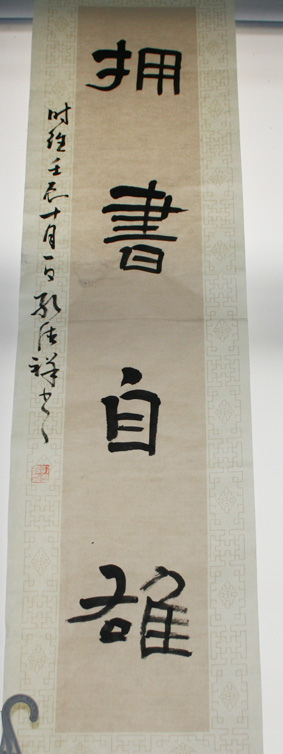 拥書自雄
时维壬辰十月一日孔法祥书